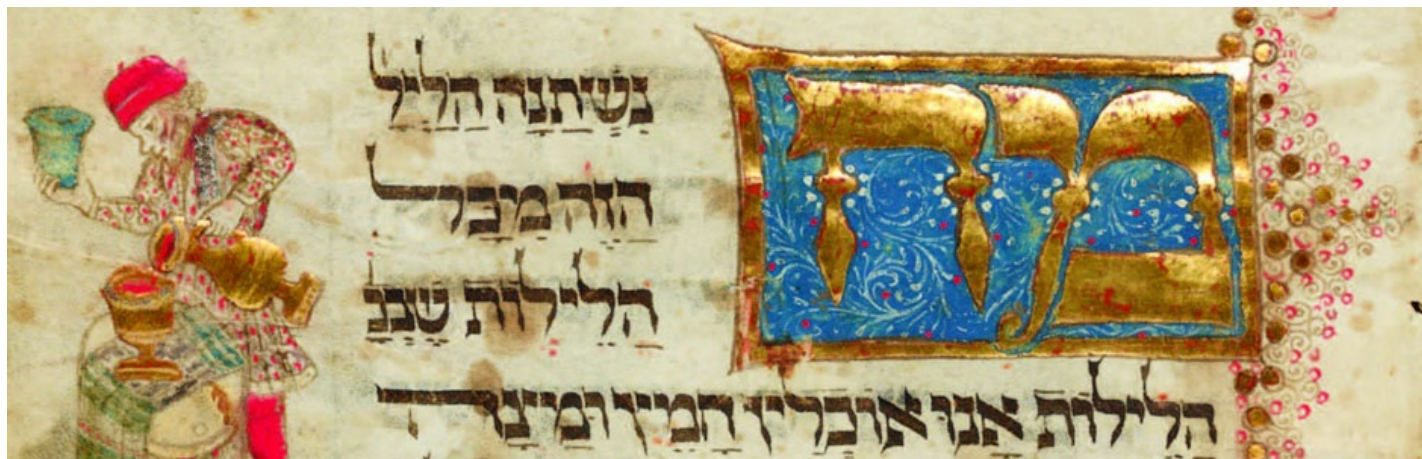 מה
נשתנה הליל
הזה מכל
הלילות שבכ
הלילות אנו אוכלין חמץ ומצה